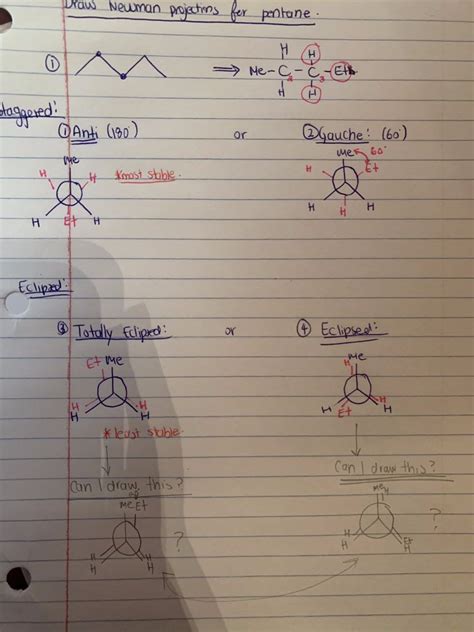 Draw Newman projections for pentane.
① ⟹ Me-C₂-C₃-Et
H H
H H
Staggered:
① Anti (180) or ② Gauche: (60)
Me Me 60°
H H *most stable. H Et
H Et H H H H
Eclipsed:
③ Totally Eclipsed: or ④ Eclipsed:
Et Me H Me
H H H H
H H H Et H
*least stable.
Can I draw this? Can I draw this?
Me Et Me H
? ?
H H H Et
H H H H